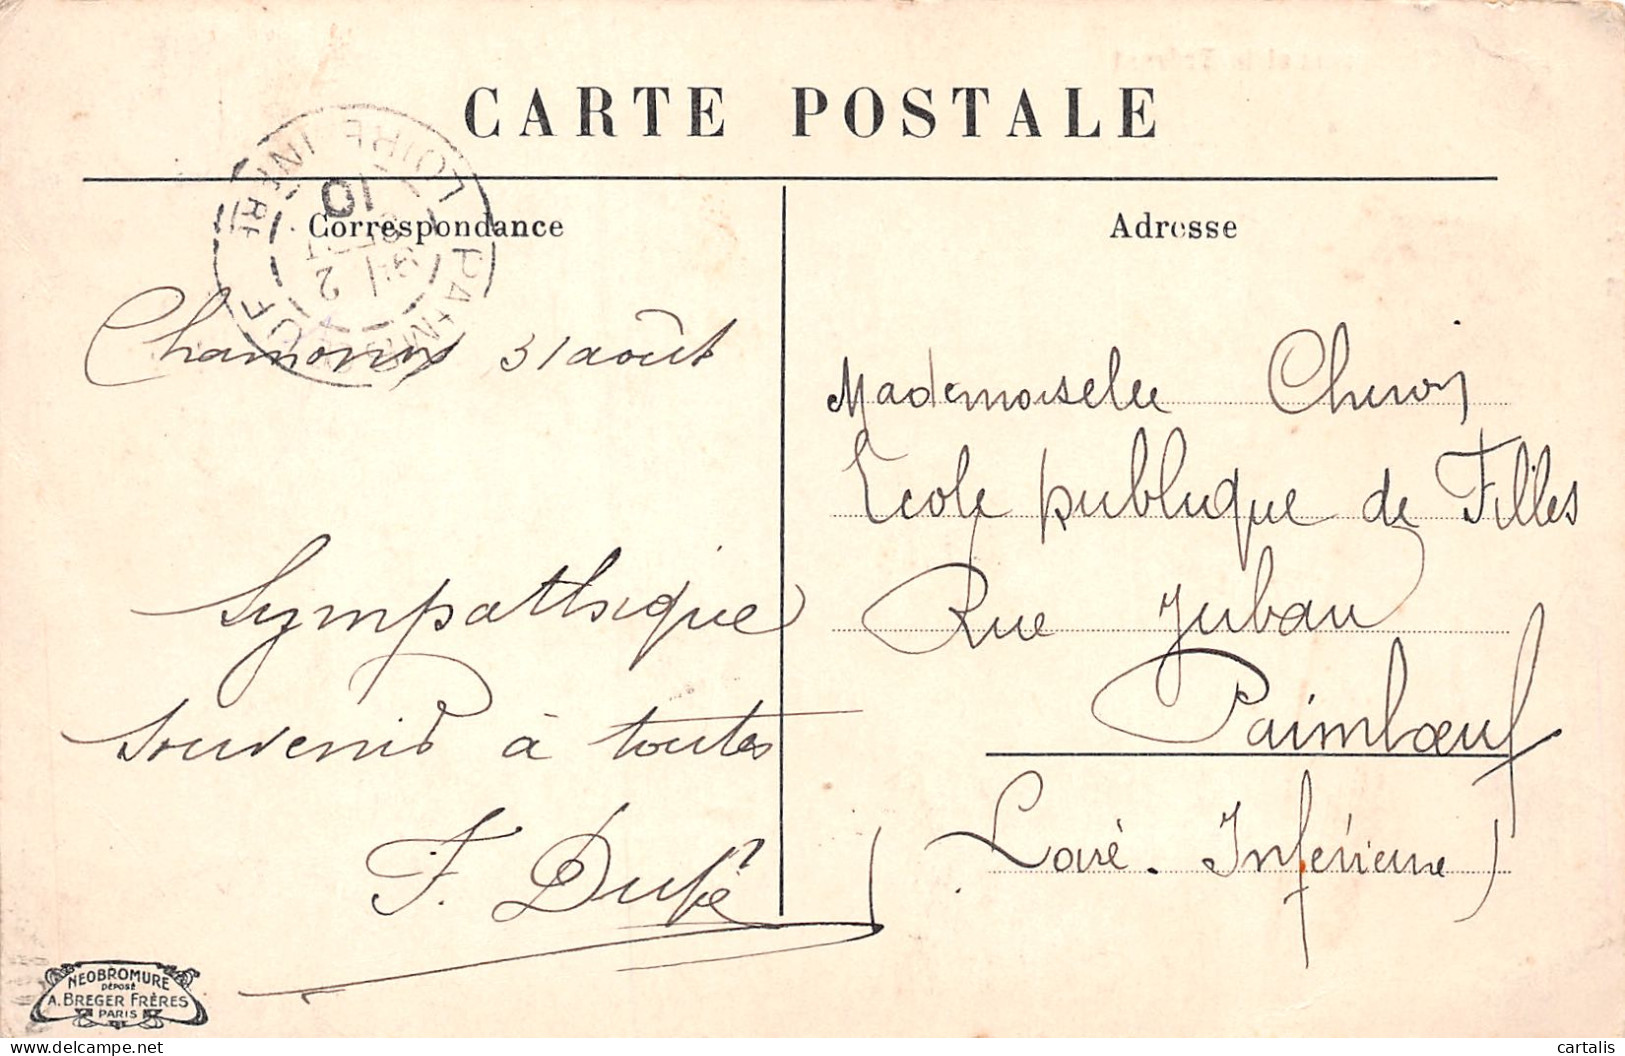 CARTE POSTALE
LOIRE INFRE
PAIMBŒUF
10
2
Correspondance
Adresse
Chamonix 31 août
Mademoiselle
École publique de Filles
Rue Juban
Paimbœuf
(Loire-Inférieure)
Sympathique
souvenir à toutes
F. Dufé
NEOBROMURE
DÉPOSÉ
A. BREGER FRÈRES
PARIS
cartalis